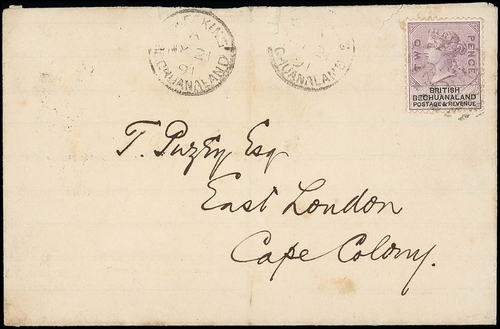 MAFEKING
A
MR 21
91
BECHUANALAND
CHUANALAND
91
TWO PENCE
BRITISH
BECHUANALAND
POSTAGE & REVENUE
T. Puzey Esq
East London
Cape Colony.